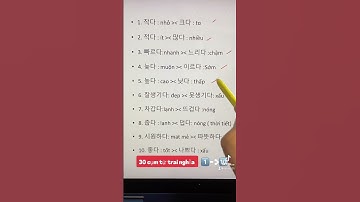 1. 작다 : nhỏ >< 크다 : to
2. 적다 : ít >< 많다 : nhiều
3. 빠르다: nhanh >< 느리다 :chậm
4. 늦다 : muộn >< 이르다 :Sớm
5. 높다 : cao >< 낮다 : thấp
6. 잘생기다 : đẹp >< 못생기다 : xấu
7. 차갑다 :lạnh >< 뜨겁다 :nóng
8. 춥다 : lạnh >< 덥다 : nóng ( thời tiết)
9. 시원하다 : mát mẻ >< 따뜻하다
10. 좋다 : tốt >< 나쁘다 : xấu
30 cặp từ trái nghĩa 1